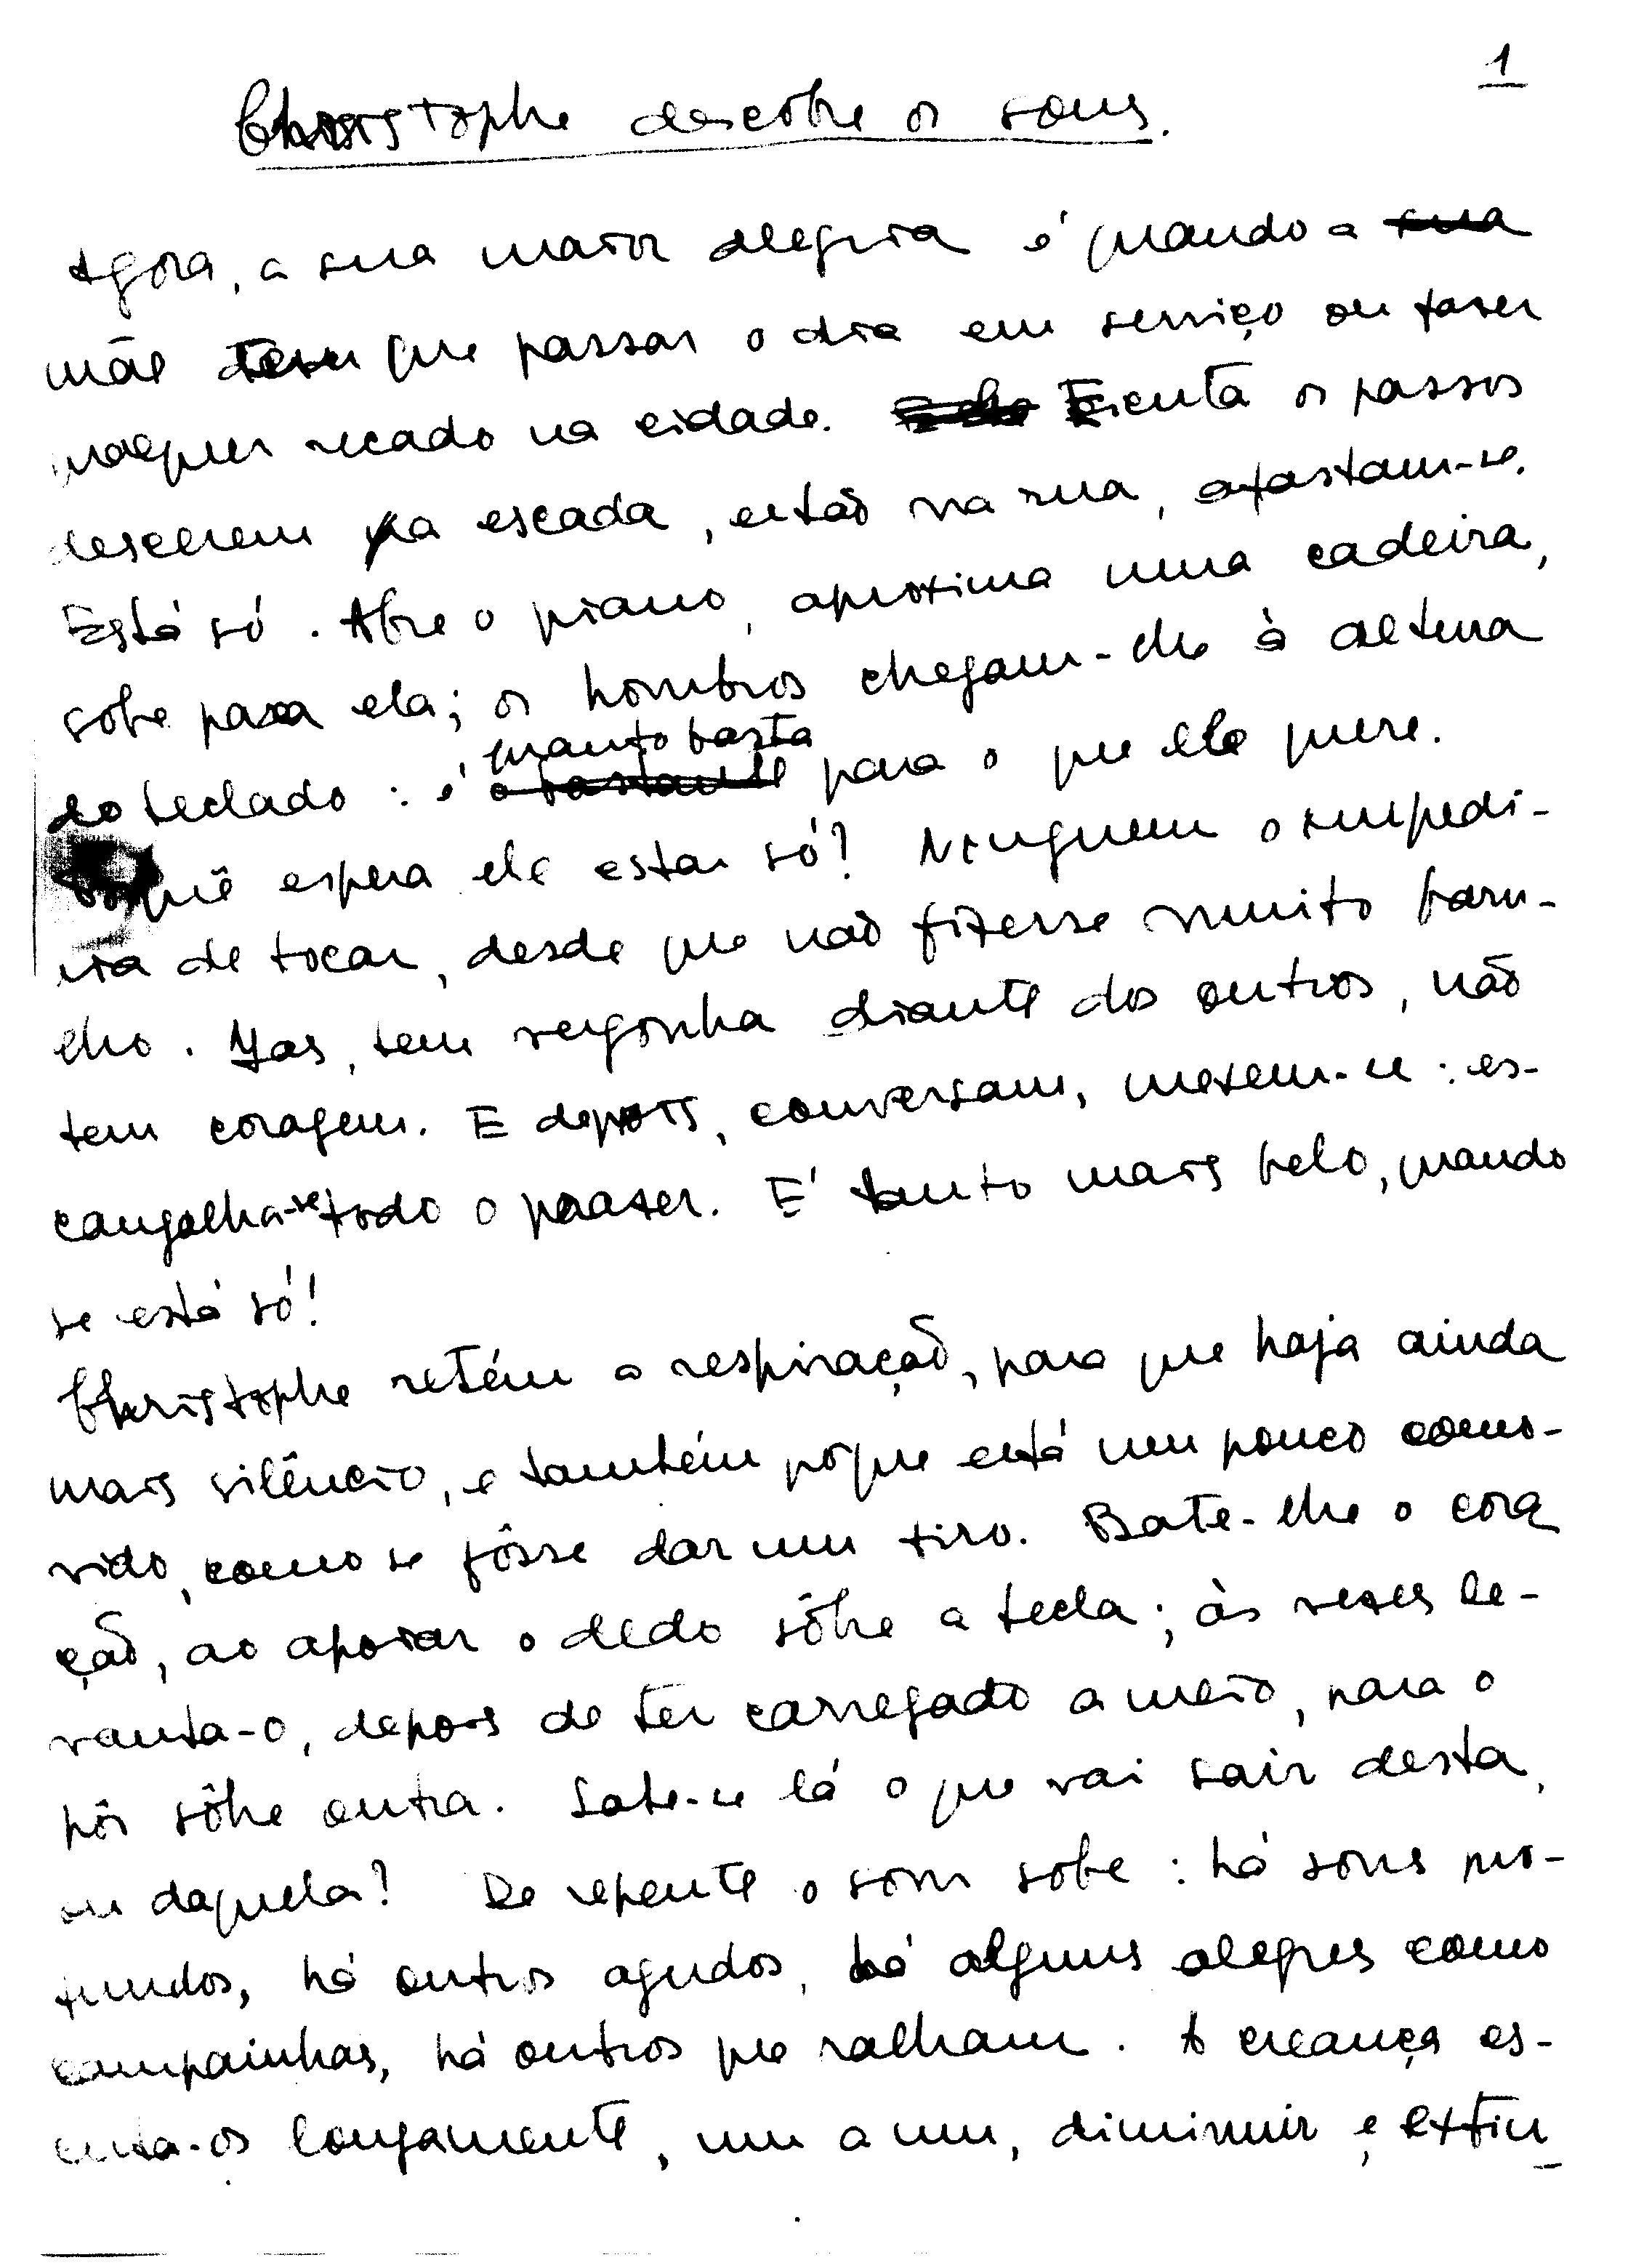 1
Christophe descobre os sons.
Agora, a sua maior alegria é quando a sua
mãe tem que passar o dia em serviço ou fazer
qualquer recado na cidade. Escuta os passos
descerem na escada, então na rua, afastam-se.
Está só. Abre o piano, aproxima uma cadeira,
sobe para ela; os hombros chegam-lhe à altura
quanto basta
do teclado: é o bastante para o que ele quere.
Porquê espera ele estar só? Ninguem o impedi-
ria de tocar, desde que não fizesse muito baru-
lho. Mas, tem vergonha diante dos outros, não
tem coragem. E depois, conversam, mexem-se: es-
cangalha-se todo o prazer. É tanto mais belo, quando
se está só!
Christophe retém a respiração, para que haja ainda
mais silêncio, e também porque está um pouco como-
vido, como se fôsse dar um tiro. Bate-lhe o cora
ção, ao apoiar o dedo sôbre a tecla; às vezes le-
vanta-o, depois de ter carregado a meio, para o
pôr sôbre outra. Sabe-se lá o que vai sair desta,
ou daquela? De repente o som sobe: há sons pro-
fundos, há outros agudos, há alguns alegres como
campainhas, há outros que ralham. A creança es-
cuta-os longamente, um a um, diminuir e extin